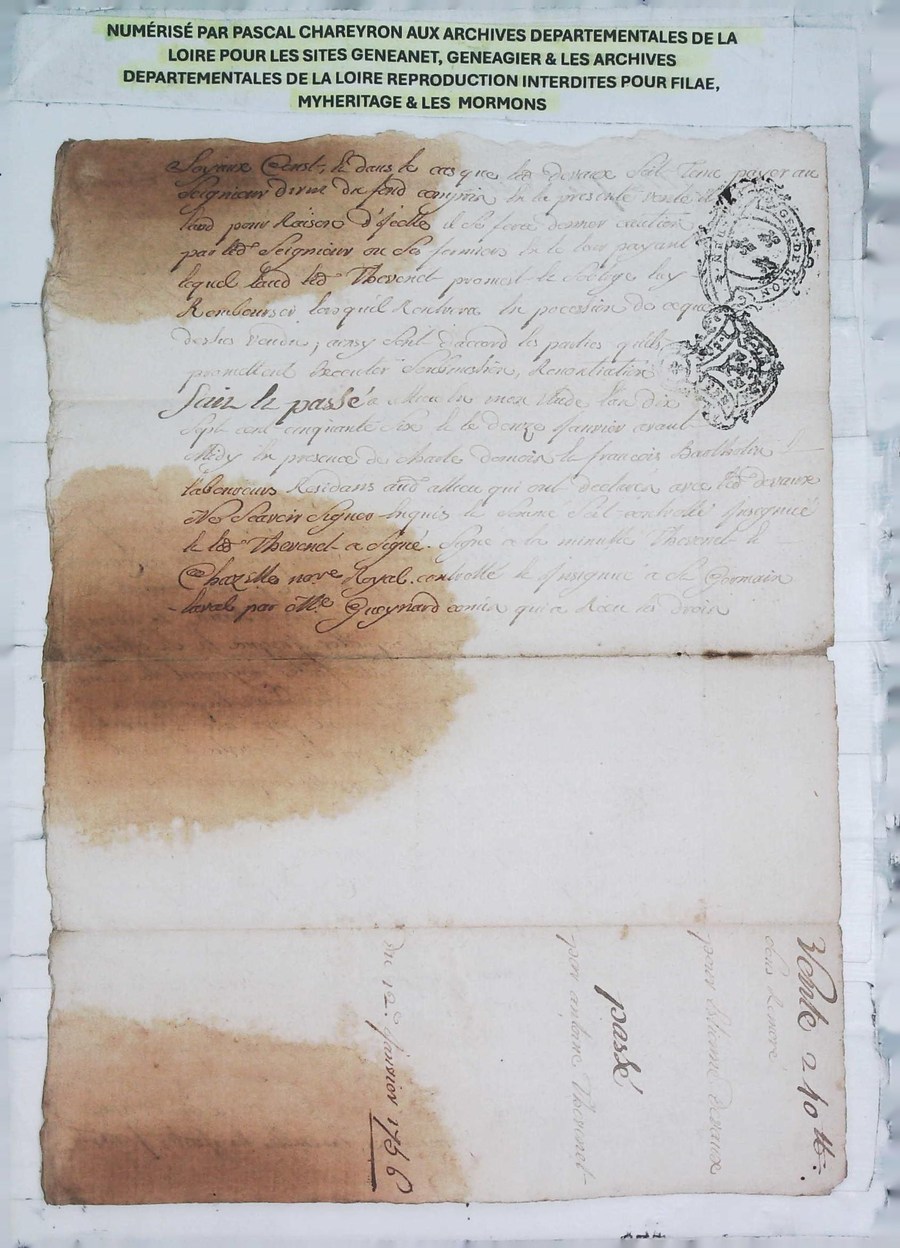 NUMÉRISÉ PAR PASCAL CHAREYRON AUX ARCHIVES DEPARTEMENTALES DE LA
LOIRE POUR LES SITES GENEANET, GENEAGIER & LES ARCHIVES
DEPARTEMENTALES DE LA LOIRE REPRODUCTION INTERDITES POUR FILAE,
MYHERITAGE & LES MORMONS
dans le cas que led devaux soit tenu payer au
Seigneur direct du fond compris en la presente vente
laud pour Raison d'Icelle il se fera donner
par led Seigneur ou Ses fermiers en le leur payant
lequel laud led Thevenet promet et s'oblige luy
Rembourser lorsqu'il Rentrera En pocession de ce que
dessus vendu, ainsy sont d'accord les parties qu'ils
promettent Executer Renontiation
fait et passé a Allieu En mon Etude l'an dix
sept cent cinquante Six et le douze Janvier avant
Midy En presence de Charle et françois Barthollin
laboureurs Residans aud Allieu qui ont declarés avec led devaux
Ne Scavoir Signer Enquis et Sera Soit controllé Insignué
et led Thevenet a Signé. Signé a la minutte Thevenet et
Chazelles no.re Royal. controllé et Insignué a St Germain
laval par M.e Gueynard comis qui a Reçu les droits
Vente 210 tt.
pour Etienne devaux
passé
par antoine Thevenet
Du 12e Janvier 1756